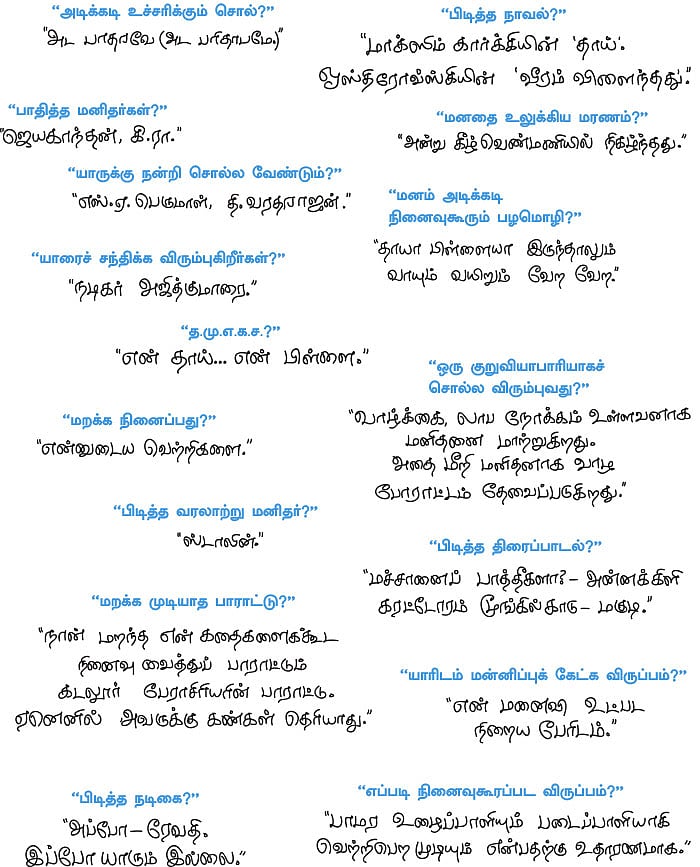 “அடிக்கடி உச்சரிக்கும் சொல்?”
“அட பாதரவே (அட பரிதாபமே.)”
“பாதித்த மனிதர்கள்?”
“ஜெயகாந்தன், கி.ரா.”
“யாருக்கு நன்றி சொல்ல வேண்டும்?”
“எஸ்.ஏ.பெருமாள், தி.வரதராஜன்.”
“யாரைச் சந்திக்க விரும்புகிறீர்கள்?”
“நடிகர் அஜித்குமாரை.”
“த.மு.எ.க.ச.?”
“என் தாய்... என் பிள்ளை.”
“மறக்க நினைப்பது?”
“என்னுடைய வெற்றிகளை.”
“பிடித்த வரலாற்று மனிதர்?”
“ஸ்டாலின்.”
“மறக்க முடியாத பாராட்டு?”
“நான் மறந்த என் கதைகளைக்கூட
நினைவு வைத்துப் பாராட்டும்
கடலூர் பேராசிரியரின் பாராட்டு.
ஏனெனில் அவருக்கு கண்கள் தெரியாது.”
“பிடித்த நடிகை?”
“அப்போ – ரேவதி.
இப்போ யாரும் இல்லை.”
“பிடித்த நாவல்?”
“மார்க்ஸிம் கார்க்கியின் ‘தாய்’.
ஓஸ்திரோவ்ஸ்கியின் ‘வீரம் விளைந்தது’.”
“மனதை உலுக்கிய மரணம்?”
“அன்று கீழ்வெண்மணியில் நிகழ்ந்தது.”
“மனம் அடிக்கடி
நினைவுகூரும் பழமொழி?”
“தாயா பிள்ளையா இருந்தாலும்
வாயும் வயிறும் வேற வேற.”
“ஒரு குறுவியாபாரியாகச்
சொல்ல விரும்புவது?”
“வாழ்க்கை, லாப நோக்கம் உள்ளவனாக
மனிதனை மாற்றுகிறது.
அதை மீறி மனிதனாக வாழ
போராட்டம் தேவைப்படுகிறது.”
“பிடித்த திரைப்பாடல்?”
“மச்சானைப் பாத்தீகளா? – அன்னக்கிளி
கரட்டோரம் மூங்கில்காடு – மகுடி.”
“யாரிடம் மன்னிப்புக் கேட்க விருப்பம்?”
“என் மனைவி உட்பட
நிறைய பேரிடம்.”
“எப்படி நினைவுகூரப்பட விருப்பம்?”
“பாமர உழைப்பாளியும் படைப்பாளியாகி
வெற்றிபெற முடியும் என்பதற்கு உதாரணமாக.”